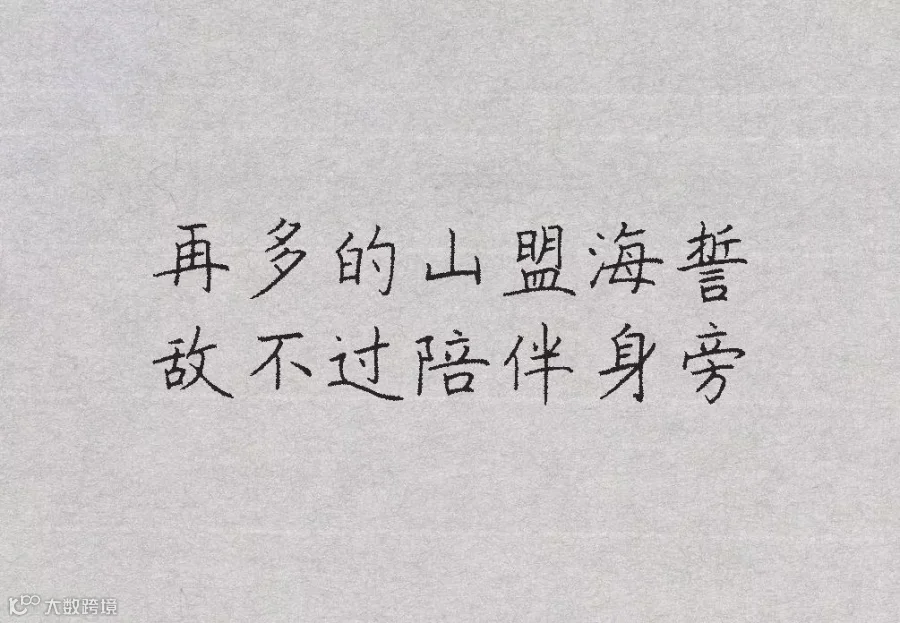 再多的山盟海誓
敌不过陪伴身旁
大数跨境